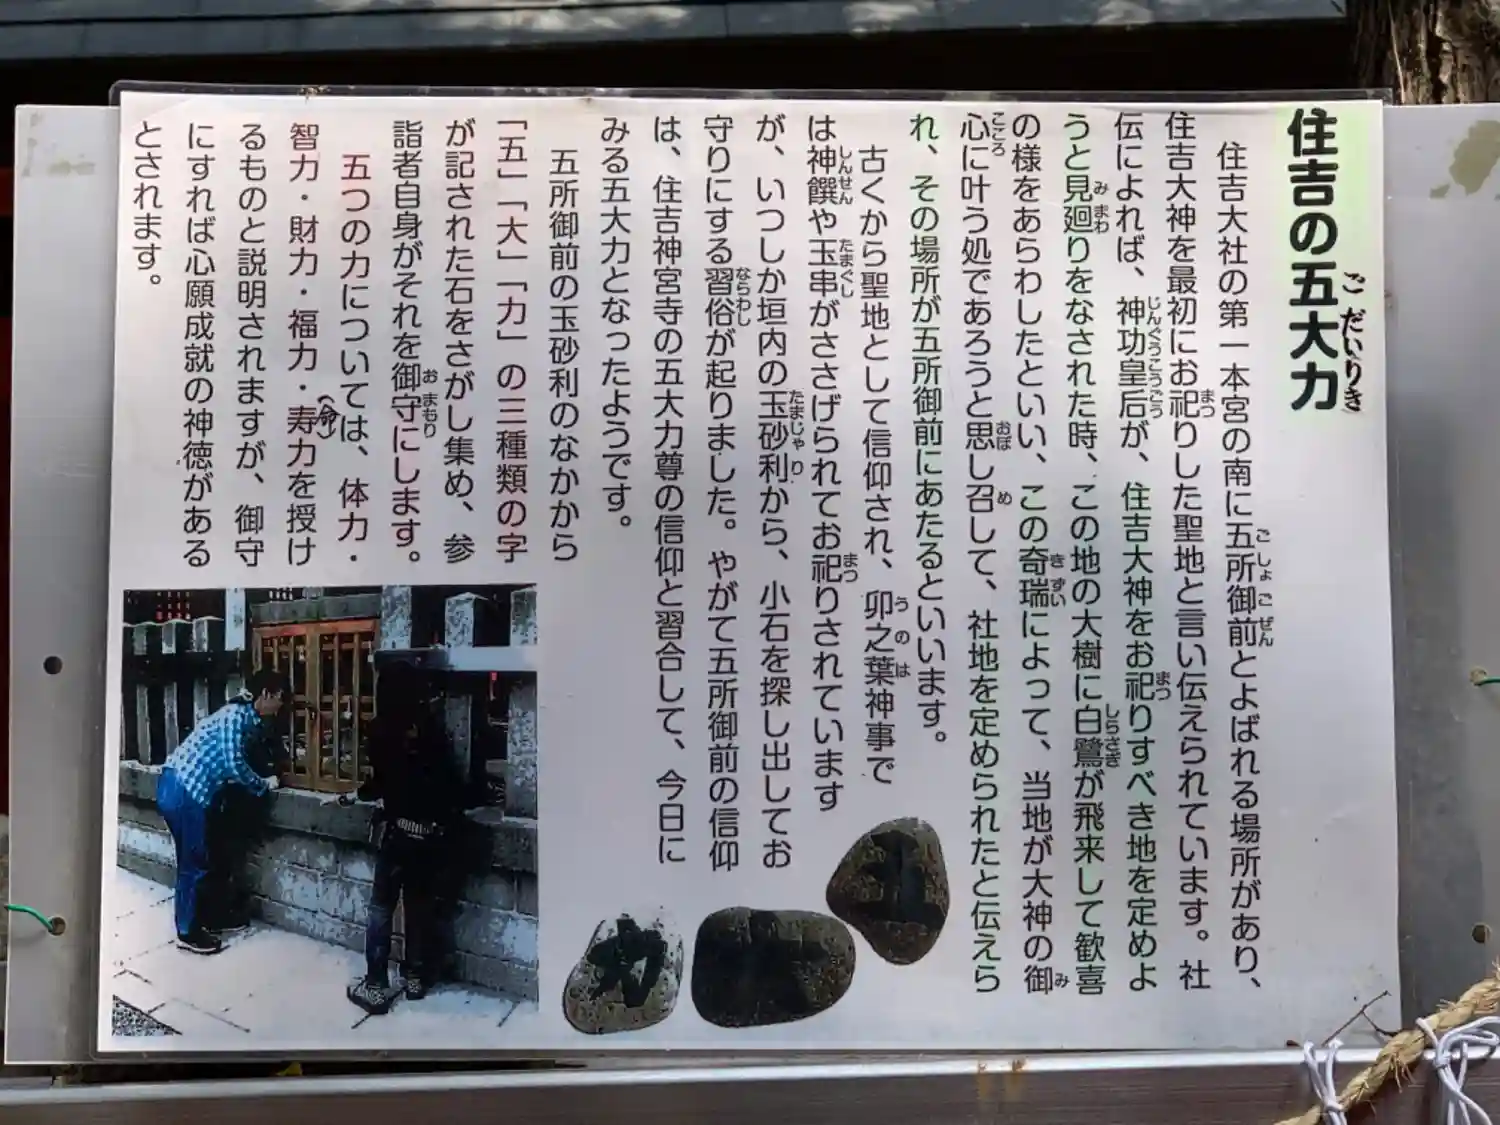 住吉の五大力
ごだいりき
住吉大社の第一本宮の南に五所御前とよばれる場所があり、
ごしょごぜん
住吉大神を最初にお祀りした聖地と言い伝えられています。社
まつ
伝によれば、神功皇后が、住吉大神をお祀りすべき地を定めよ
じんぐうこうごう
まつ
うと見廻りをなされた時、この地の大樹に白鷺が飛来して歓喜
みまわ
しらさぎ
の様をあらわしたといい、この奇瑞によって、当地が大神の御
きずい
み
心に叶う処であろうと思し召して、社地を定められたと伝えら
こころ
おぼ
め
れ、その場所が五所御前にあたるといいます。
古くから聖地として信仰され、卯之葉神事で
うのは
は神饌や玉串がささげられてお祀りされています
しんせん
たまぐし
まつ
が、いつしか垣内の玉砂利から、小石を探し出してお
たまじゃり
守りにする習俗が起りました。やがて五所御前の信仰
ならわし
は、住吉神宮寺の五大力尊の信仰と習合して、今日に
みる五大力となったようです。
五所御前の玉砂利のなかから
「五」「大」「力」の三種類の字
が記された石をさがし集め、参
詣者自身がそれを御守にします。
おまもり
五つの力については、体力・
智力・財力・福力・寿力を授け
(命)
るものと説明されますが、御守
にすれば心願成就の神徳がある
とされます。
五
大
力